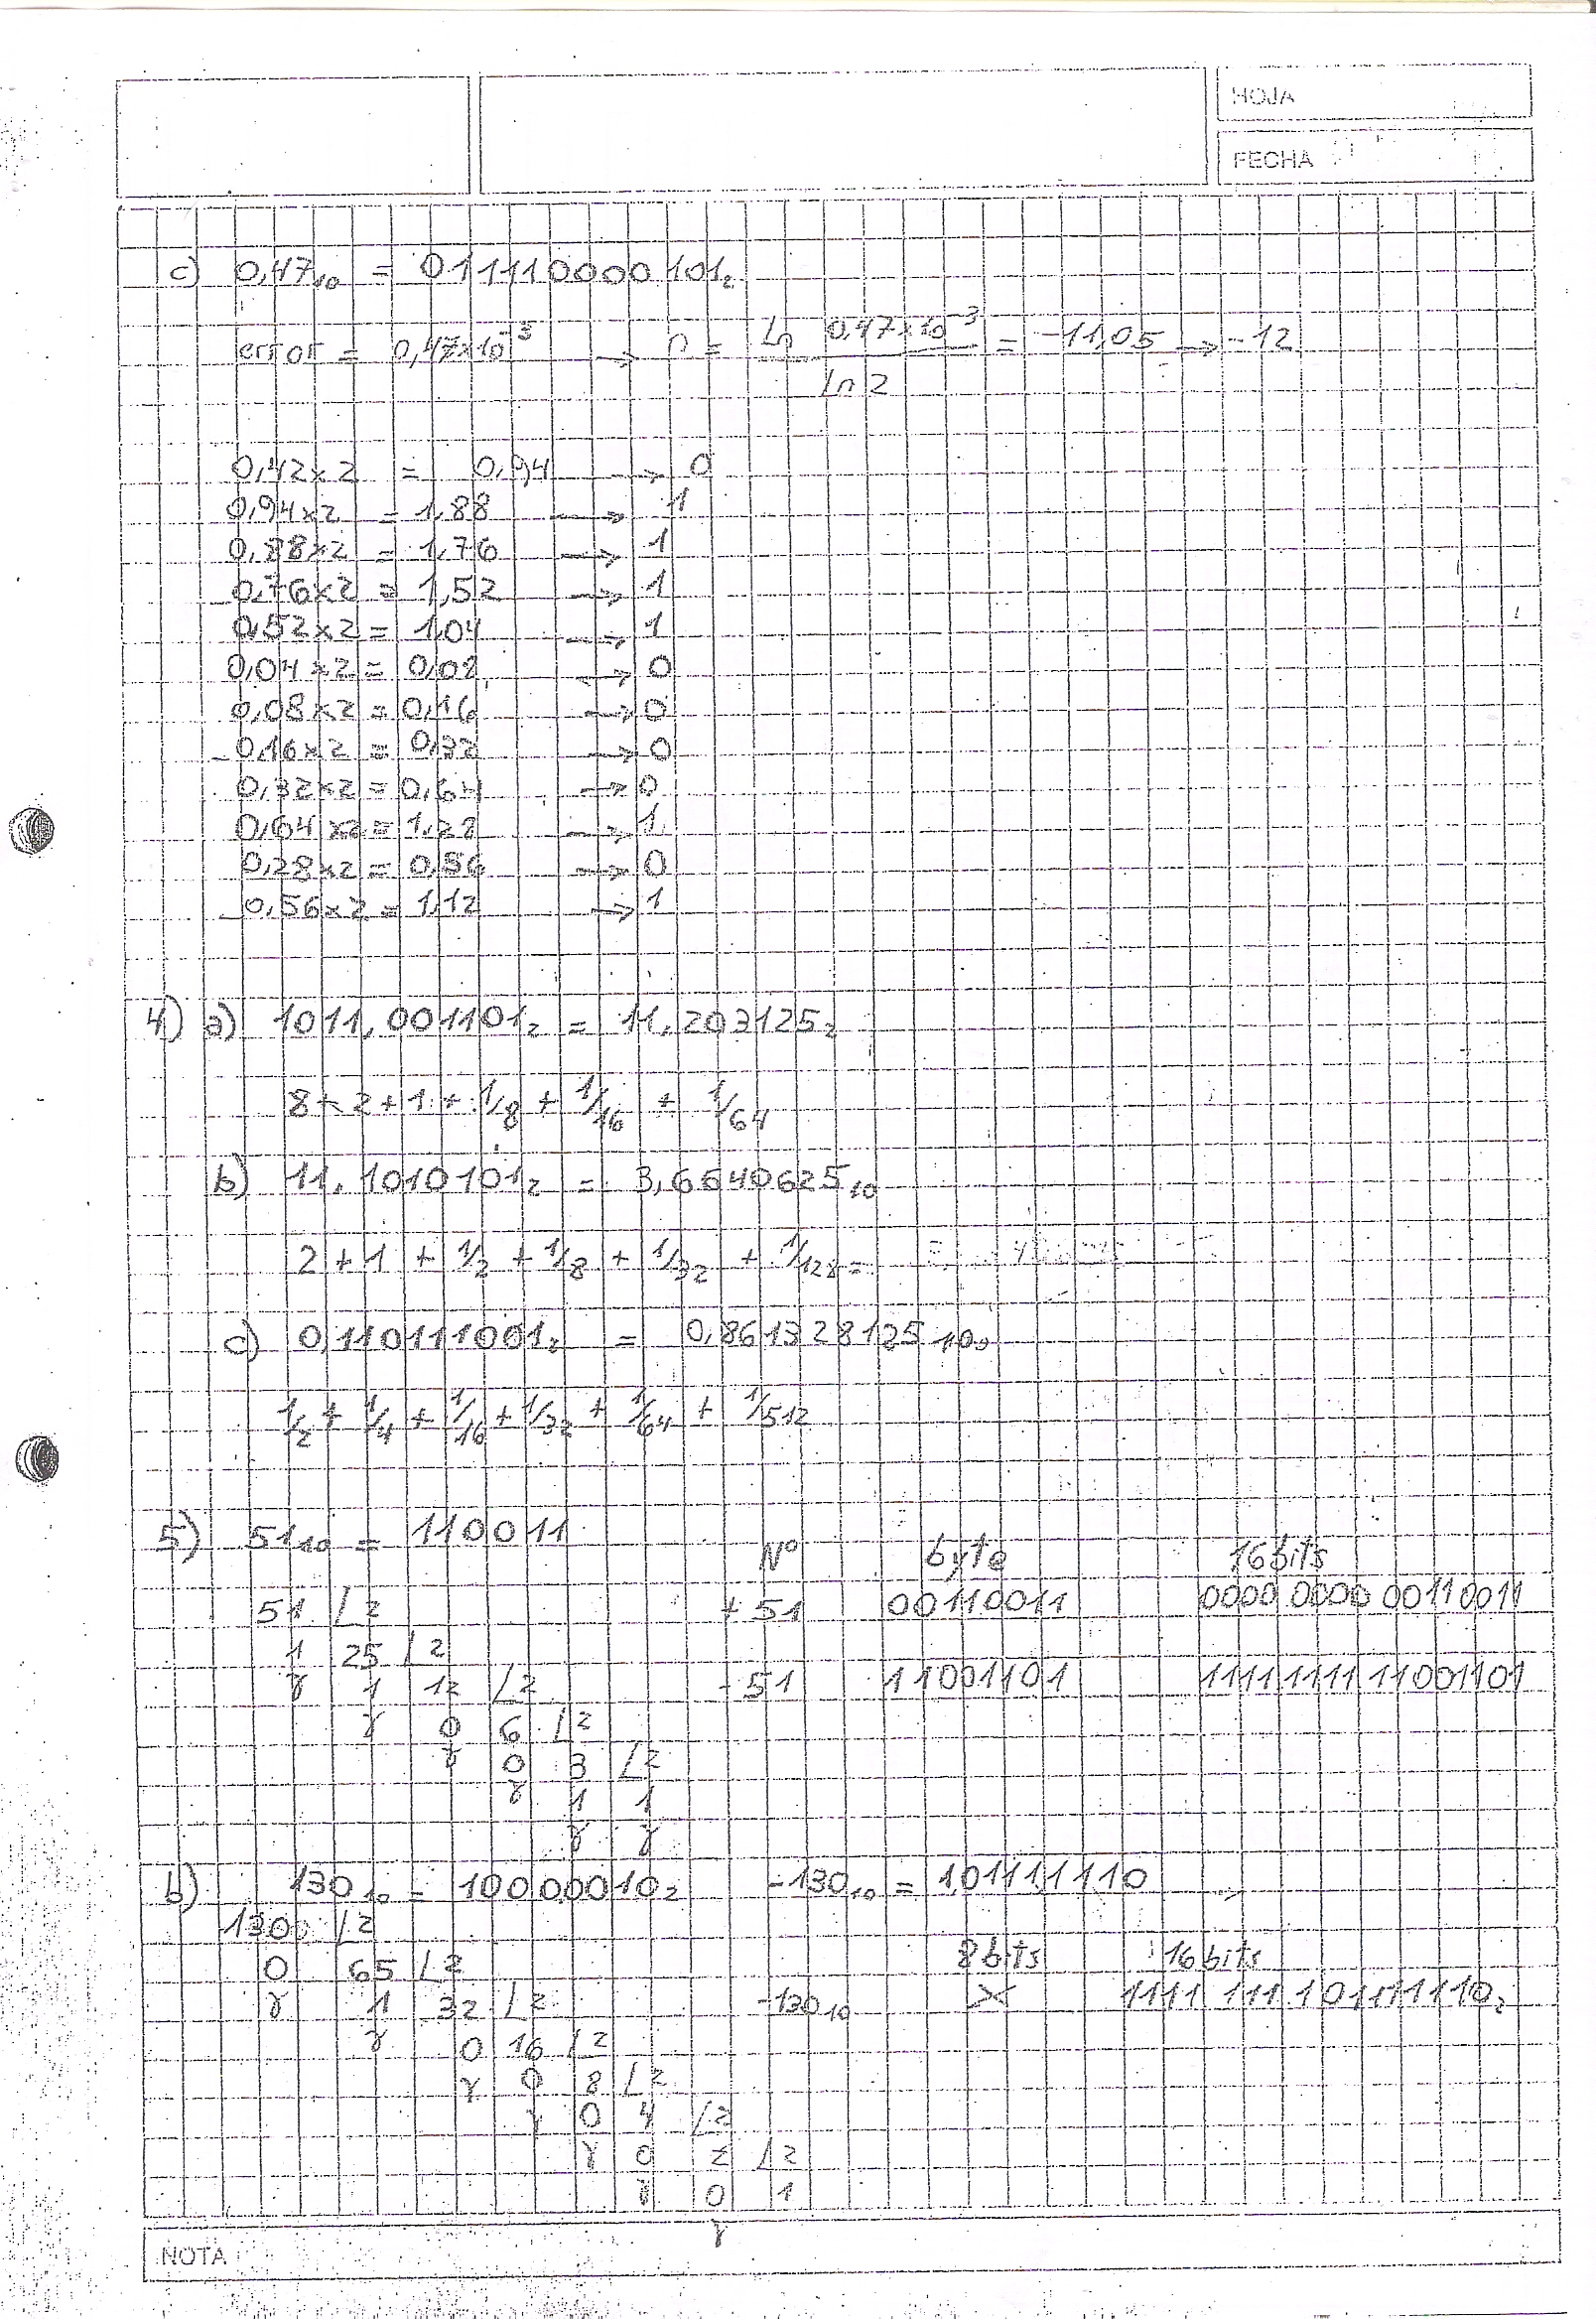 HOJA
FECHA
c) 0,47₁₀ = 011110000101₂
error = 0,47x10⁻³ → n = Ln 0,47x10⁻³ / Ln 2 = -11,05 → -12
0,42x2 = 0,94 → 0
0,94x2 = 1,88 → 1
0,88x2 = 1,76 → 1
0,76x2 = 1,52 → 1
0,52x2 = 1,04 → 1
0,04x2 = 0,08 → 0
0,08x2 = 0,16 → 0
0,16x2 = 0,32 → 0
0,32x2 = 0,64 → 0
0,64x2 = 1,28 → 1
0,28x2 = 0,56 → 0
0,56x2 = 1,12 → 1
4) a) 1011,001101₂ = 11,203125₂
8+2+1+1/8+1/16+1/64
b) 11,1010101₂ = 3,6640625₁₀
2+1+1/2+1/8+1/32+1/128=
c) 0,110111001₂ = 0,861328125₁₀
1/2+1/4+1/16+1/32+1/64+1/512
5) 51₁₀ = 110011
Nº byte 16 bits
51 /2 +51 00110011 0000 0000 00110011
1 25 /2
1 12 /2 -51 11001101 11111111 11001101
0 6 /2
0 3 /2
1 1
b) 130₁₀ = 10000010₂ -130₁₀ = 101111110
130 /2
0 65 /2 8 bits 16 bits
1 32 /2 -130₁₀ X 1111 111 101111110₂
0 16 /2
0 8 /2
0 4 /2
0 2 /2
0 1
NOTA